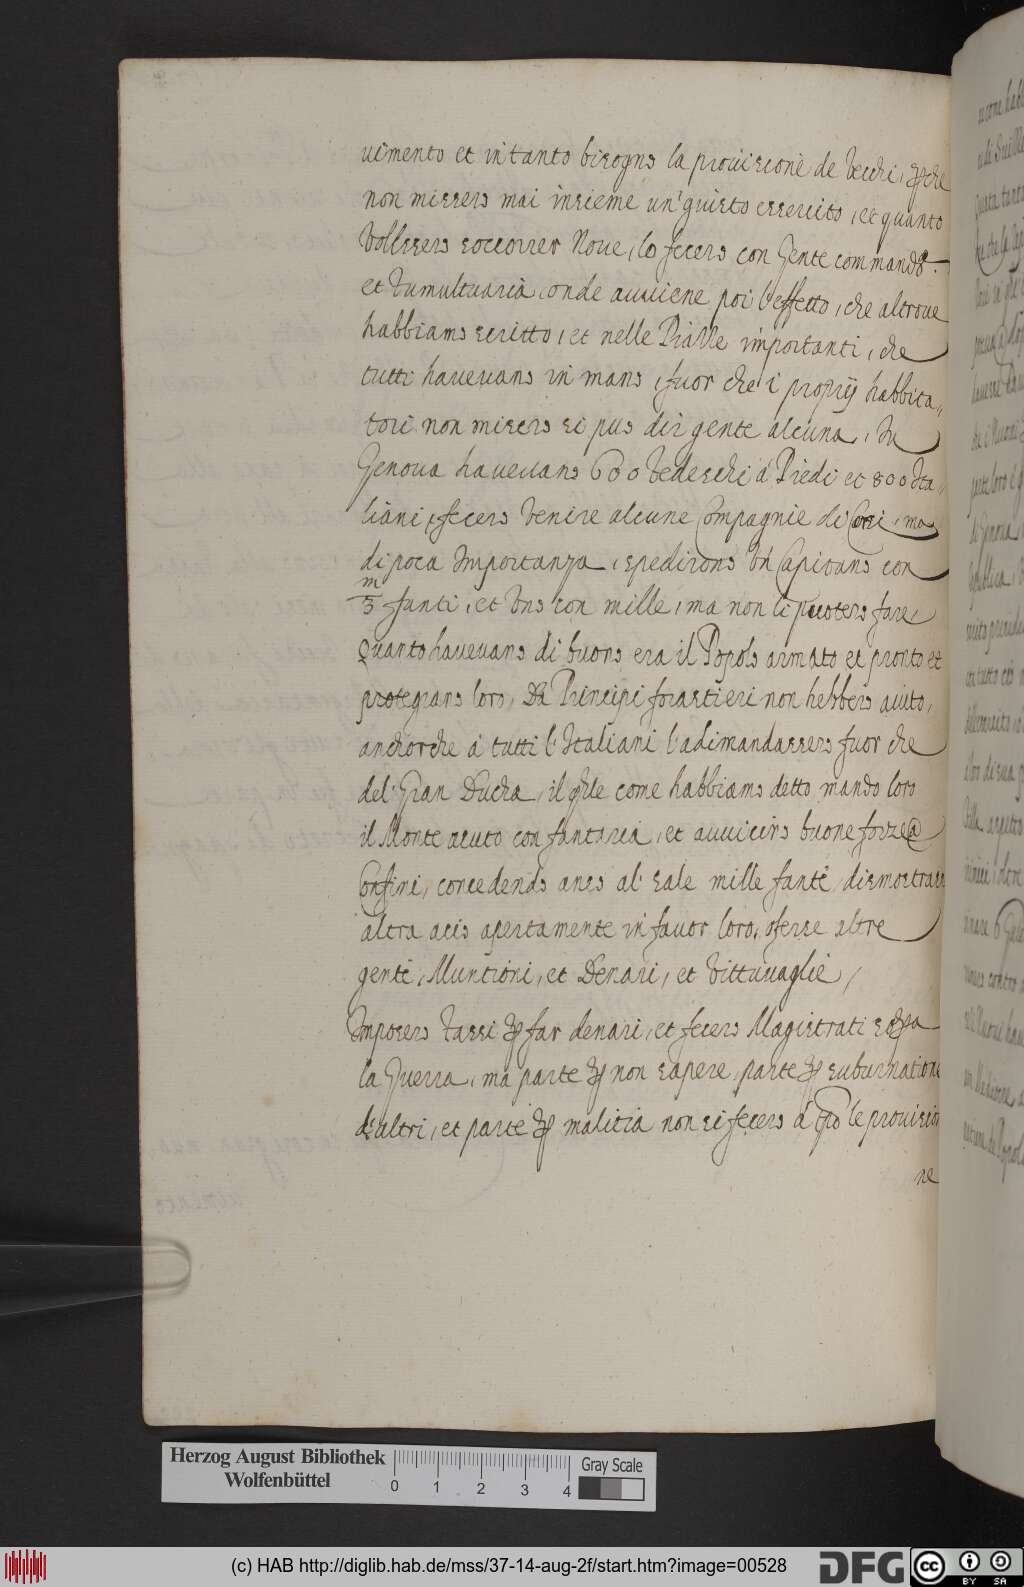 uimento et in tanto bisogno la prouisione de Vecchi, che
non missero mai insieme un' giusto essercito, et quanto
Vollsero soccorrer Noue, lo fecero con Gente command.
et tumultuaria, onde auuiene poi l'effetto, che altroue
habbiamo scritto, et nelle Piazze importanti, che
tutti haueuano in mano, fuor che i proprij habbita,,
tori non missero si puo dir gente alcuna, In
Genoua haueuano 600 Tedeschi à Piedi et 800 Ita,,
liani, fecero Venire alcune Compagnie di Corsi, ma
di poca Importanza, spedirono Un Capitano con
m
3 fanti, et Uno con mille, ma non li puotero fare
Quanto haueuano di buono era il Popolo armato et pronto et
loro, Da Principi forastieri non hebbero aiuto,
anchorche à tutti l'Italiani l'adimandassero fuor che
del' Gran Ducha, il qle come habbiamo detto mando loro
il Monte acuto con fantaria, et auuicino buone forze a
Confini, concedendo anco al' Sale mille fanti, dismostrasse
altra acio apertamente in fauor loro, offerse altre
genti, Munitioni, et Denari, et Vittuuaglie,
Imposero Tassi p far denari, et fecero Magistrati sopa
la Guerra, ma parte p non sapere, parte p subornatione
d'altri, et parte p malitia non si fecero à tpo le prouisio
ne
Herzog August Bibliothek
Wolfenbüttel
0 1 2 3 4
Gray Scale
(c) HAB http://diglib.hab.de/mss/37-14-aug-2f/start.htm?image=00528
DFG
cc
BY SA